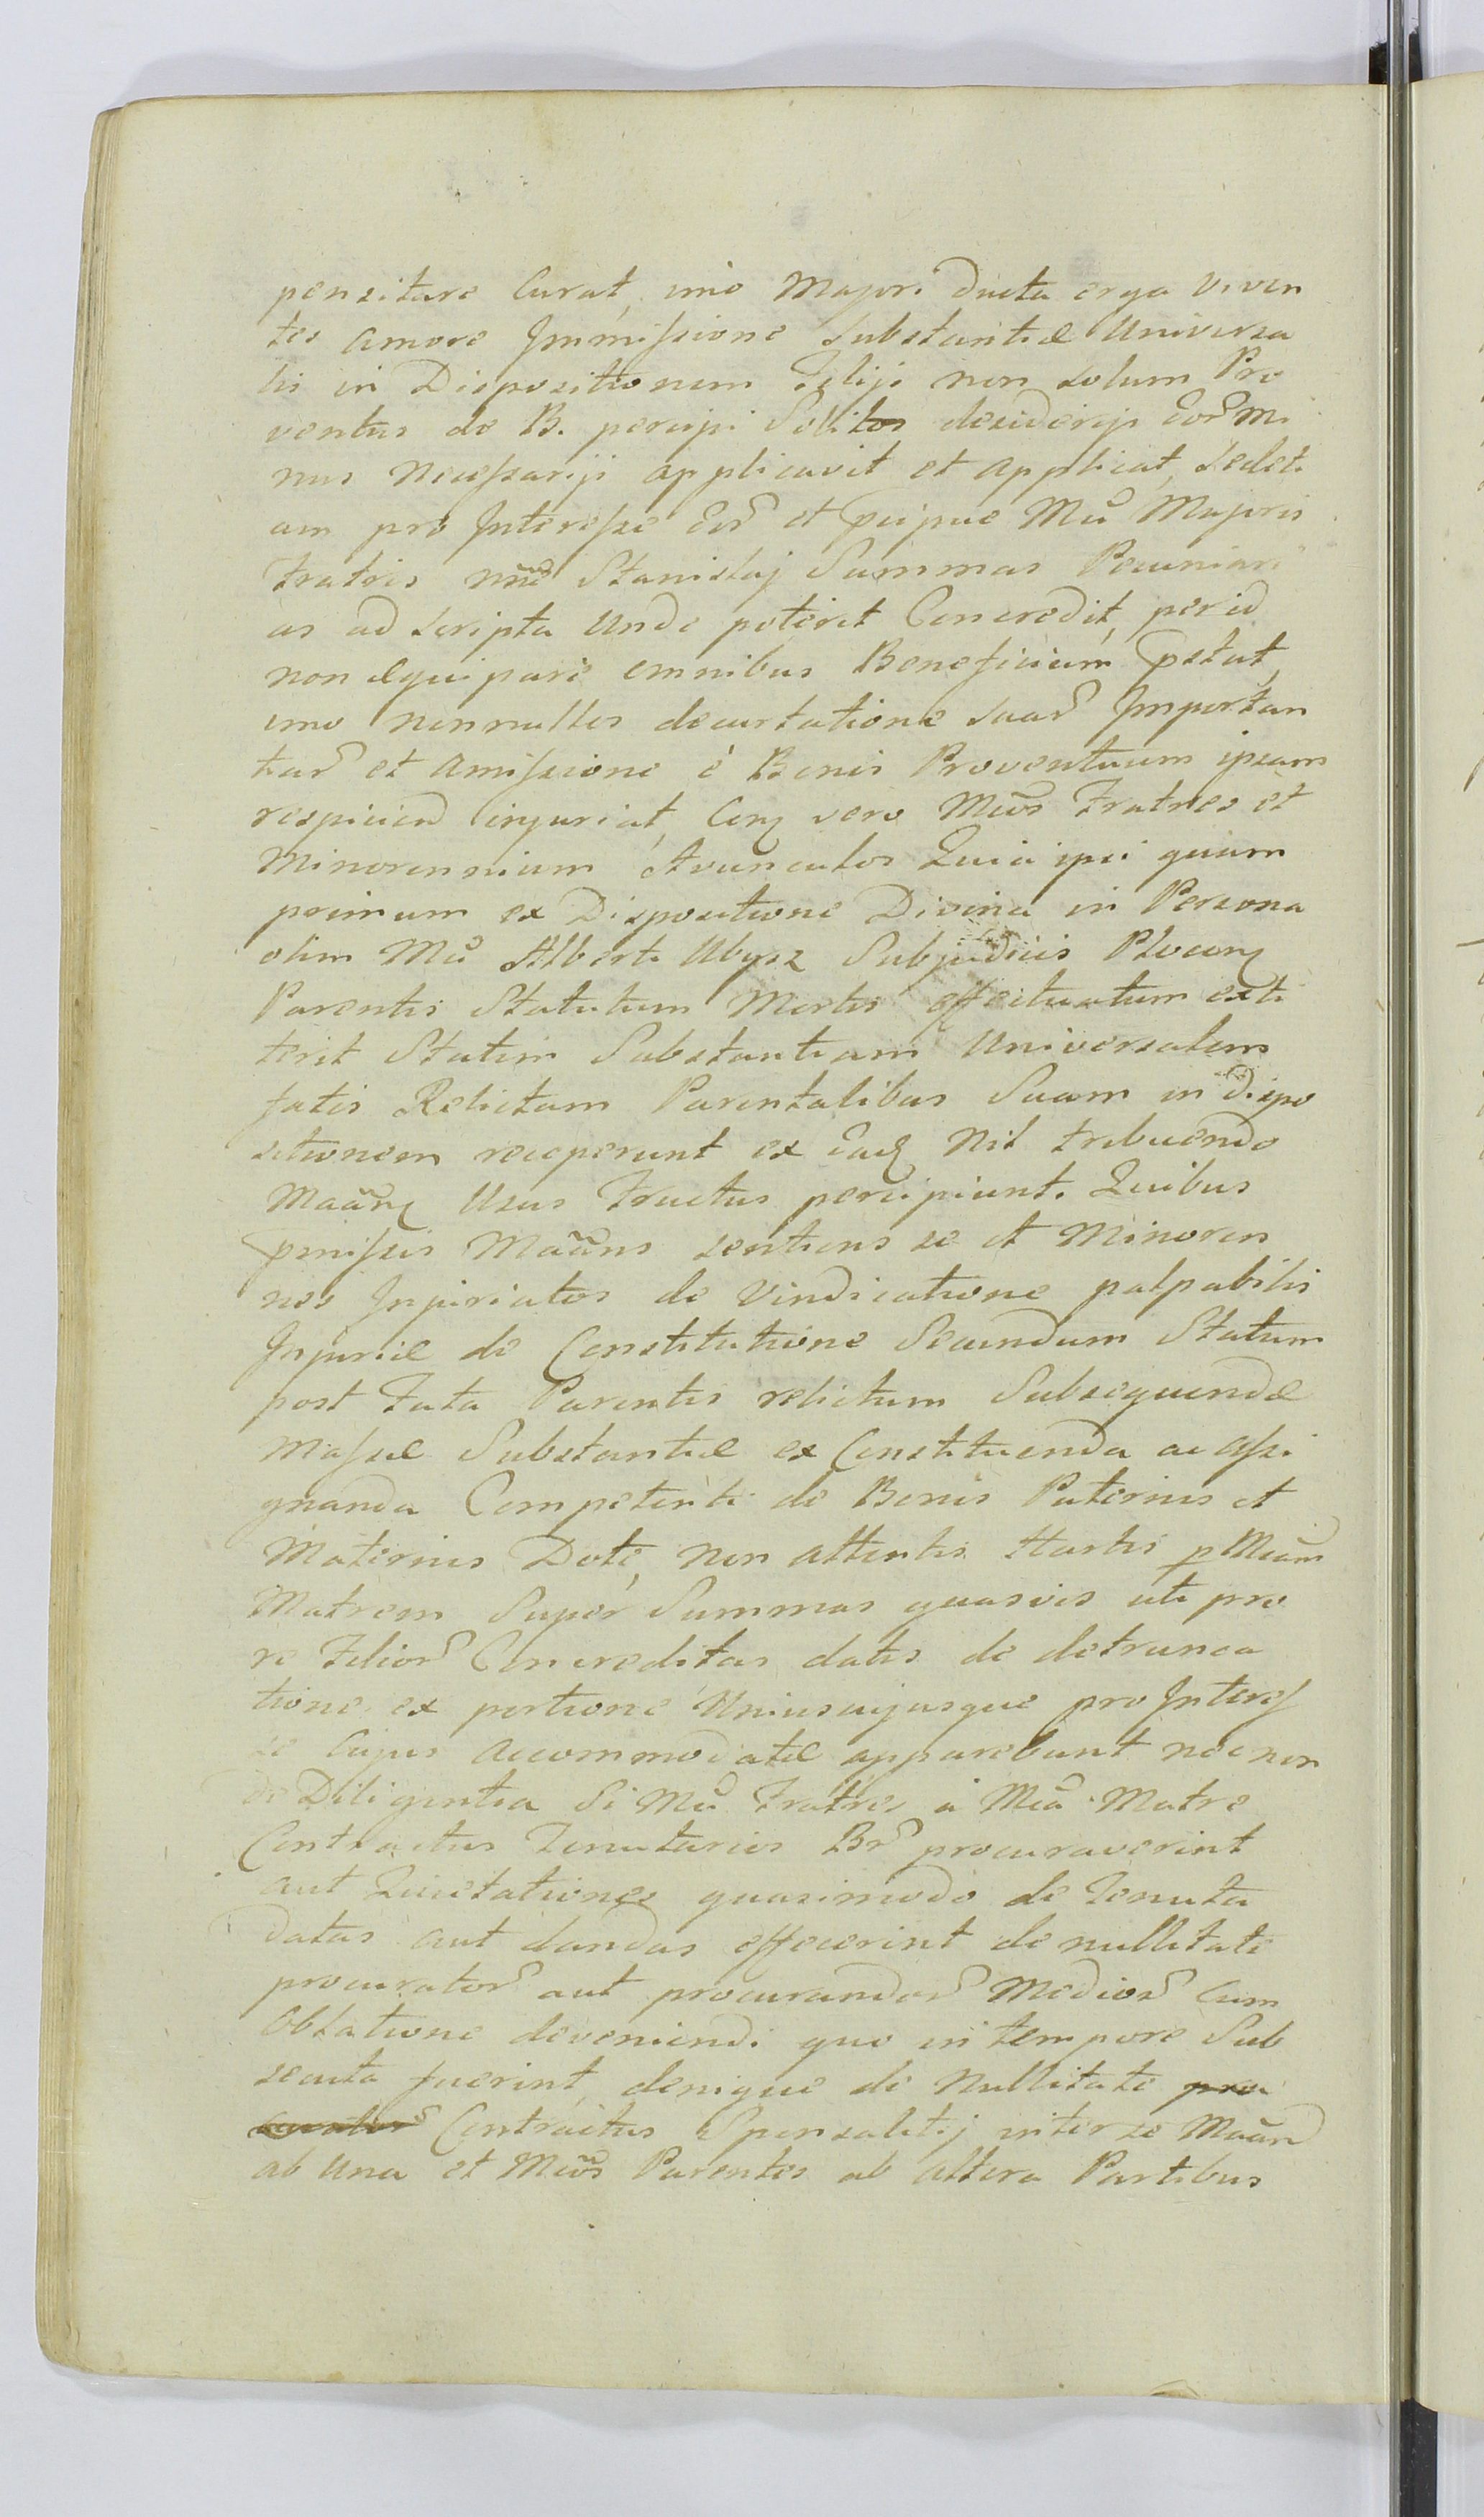 pensitare Curat, imo Majori ducta erga Viven
tes amore Immissione Substantiæ Universa
lis in Dispositionem Filiji non solum Pro
ventus de B. percipi Solitos desiderijs Eor͠ Mi
nus Necessarijs applicavit et applicat, sedeti
am pro Interesse Eor͠ et p̃cipue Mĩ Majoris
Fratris nr̃i Stanislaj Summas Pecuniari
as ad scripta Unde poterit Concredit, per id
non æqui parè omnibus Beneficium p̃stat,
imo nonnullos decurtatione suar͠ Importan
tiar͠ et amissione è Bonis Proventuum ipsam
respiciend injuriat, Cenq vero Mẽos Fratres et
Minorennium Avunculos Quia ipsi quum
primum ex Dispositione Divina in Persona
olim Mĩ Alberti Ubysz Subjudicis Plocenq
Parentis Statutum Mortis effectuatum exti
terit Statim Substantiam Universalem
fatis Relictam Parentalibus Suam in dispo
sitionem receperunt ex Eadq Nil tribuendo
Maãnq Usus Fructus percipiunt. Quibus
p̃missis Maãns sentiens se et Minoren
nes Injuriatos de Vindicatione palpabilis
Injuriæ de Constitutione Secundum Statum
post Fata Parentis relictum Subsequendæ
Massæ Substantiæ ex Constituenda ac assi
gnanda Competenti de Bonis Paternis et
Maternis Dote, non attentis Hastis p Mẽam
Matrem Super Summas quasvis uti pro
re Filior͠ Concreditas datis de detrunca
tione ex portione Uniuscujusque pro Interes
se Cujus accommodatæ apparebunt necnon
de Diligentia Si Mĩ Fratres à Mẽa Matre
Contractus Tenutarios Br͠ procuraverint
aut Quietationes quasimodo de Tenuta
datas aut dandas effecerint de nullitate
procurator͠ aut procurandor͠ Medior͠ Cum
Oblatione deveniendi quo in tempore Sub
secuta fuerint, denique de Nullitate pro
curator͠ Contractus Sponsalitij inter se Maãn
ab Una et Mẽos Parentes ab altera Partibus